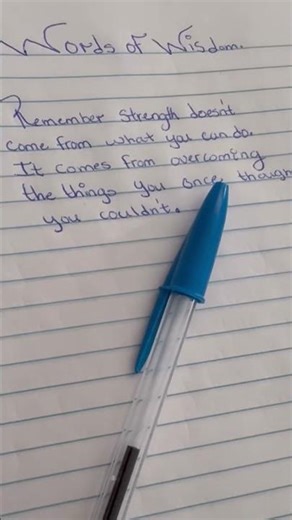 Words of Wisdom.
Remember Strength doesn't
come from what you can do.
It comes from overcoming
the things you once though
you couldn't.